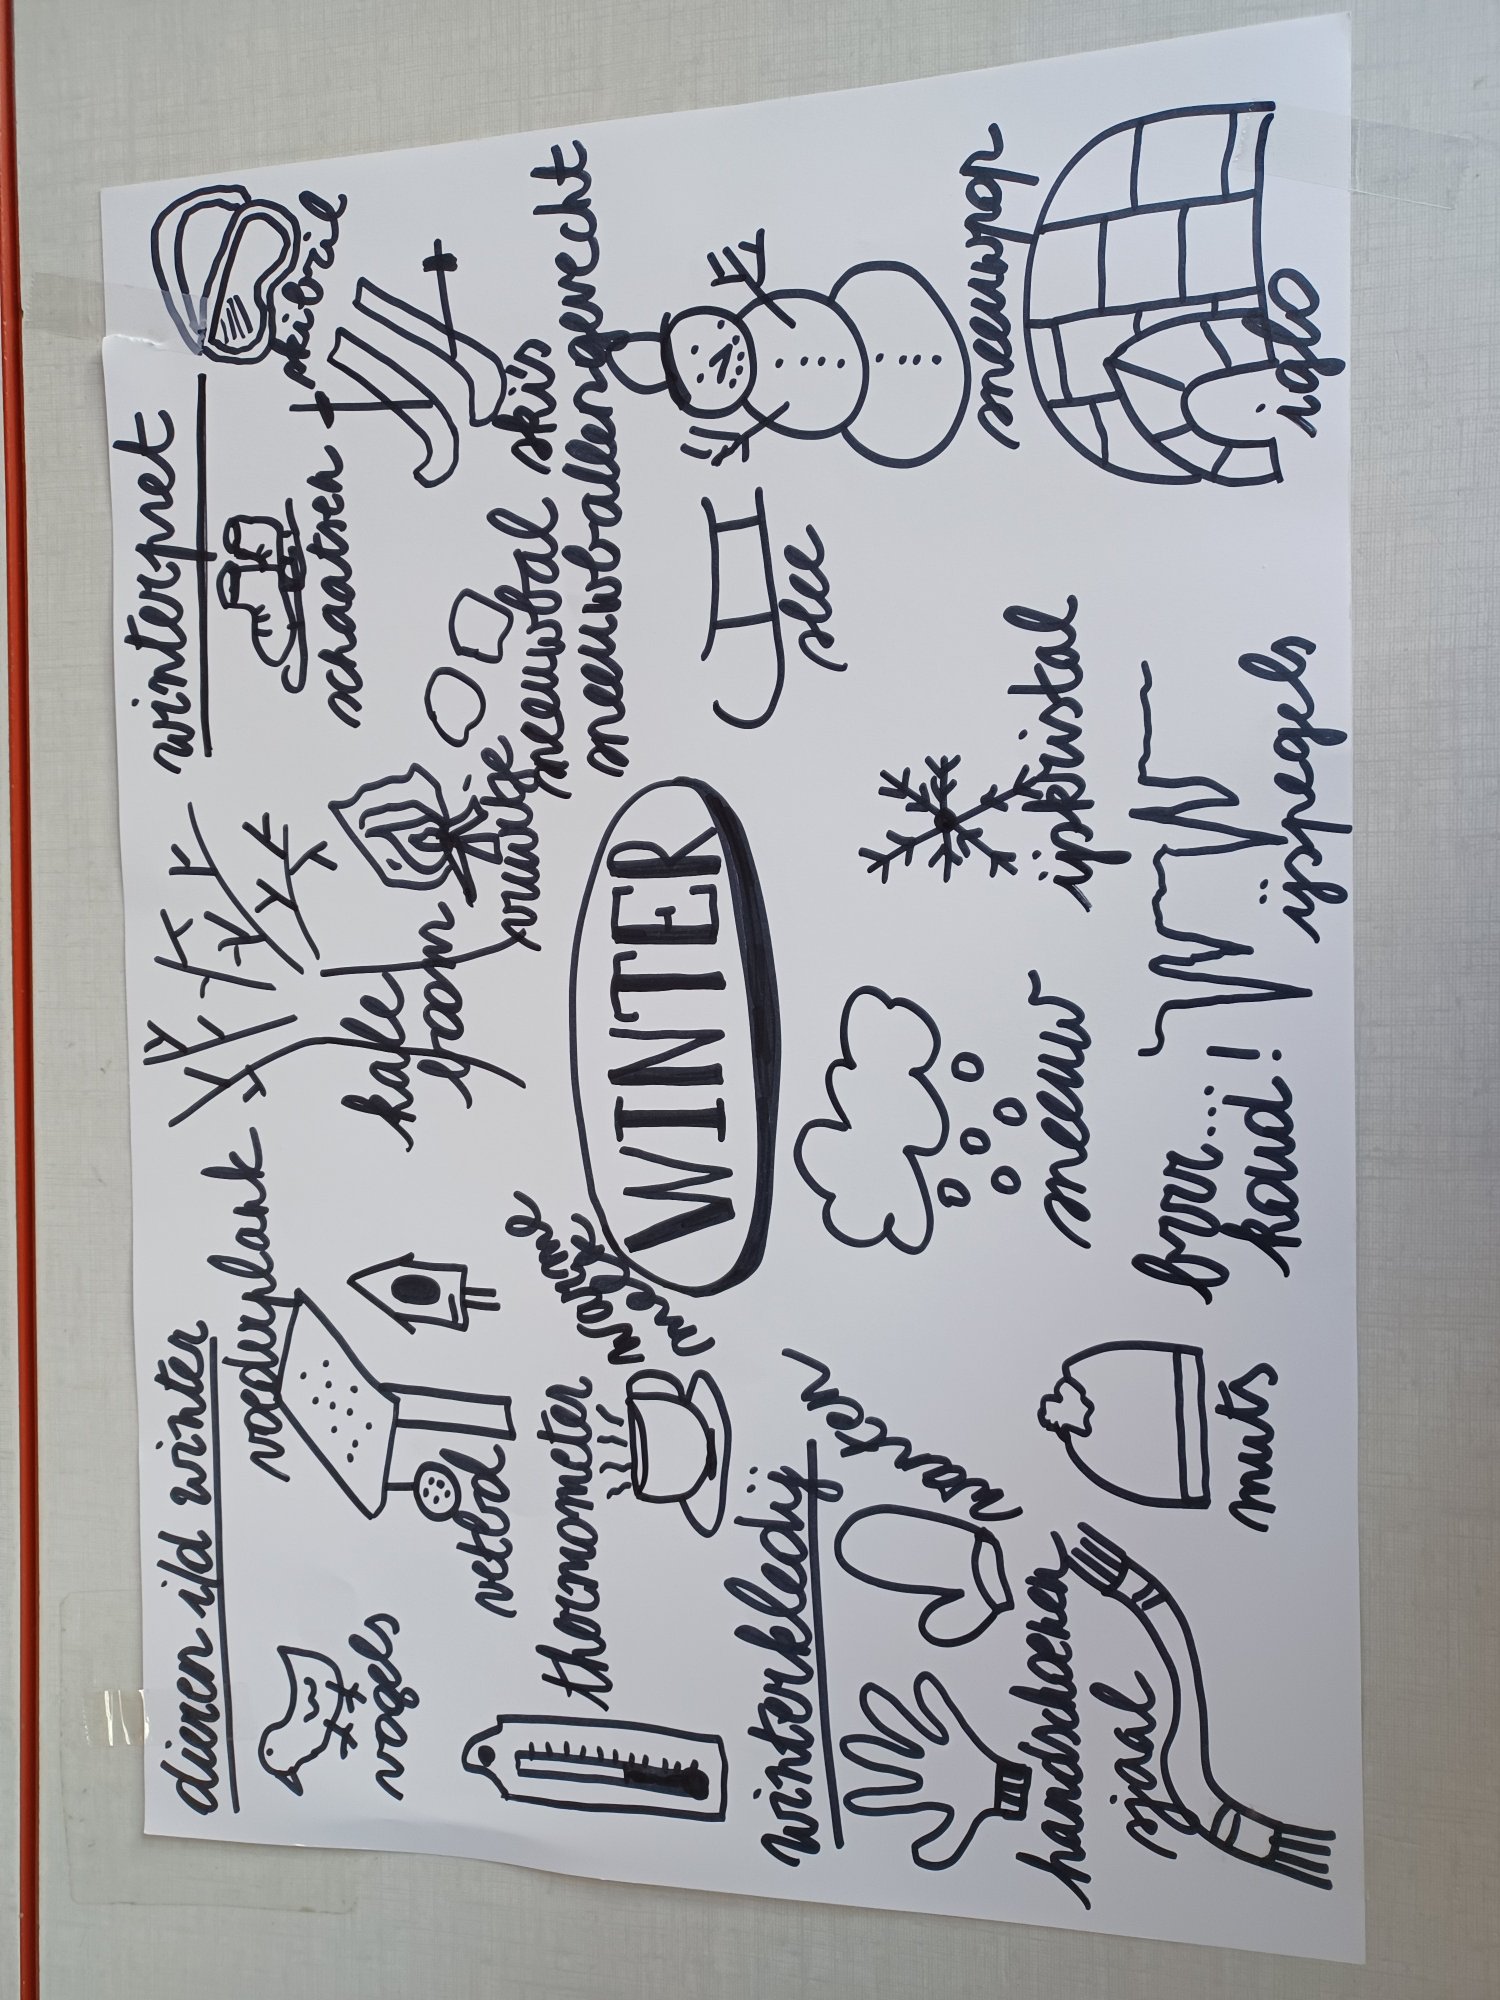 dieren i/d winter
voederplank
vogels
vetbol
kale
boom
winterpret
schaatsen
skibril
ski's
vuurtje
sneeuwbal
sneeuwballengevecht
thermometer
warme
melk
WINTER
slee
sneeuwpop
winterkledij
wanten
handschoenen
sjaal
muts
sneeuw
ijskristal
brrr...
koud!
ijspegels
iglo